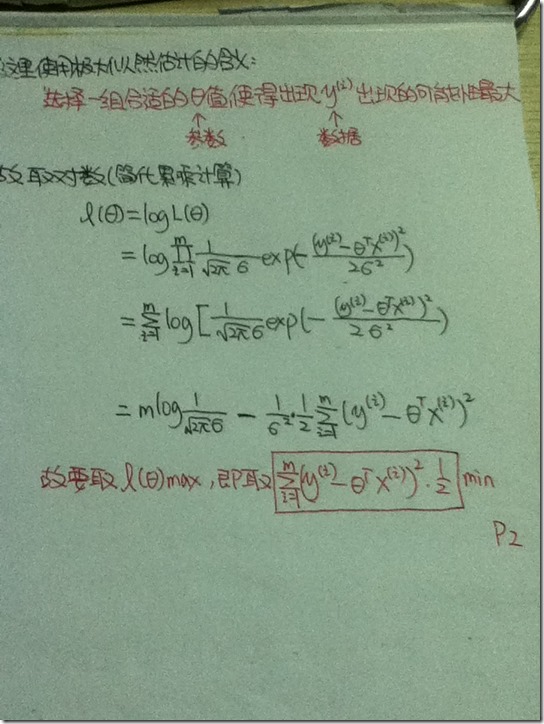 这里使用极大似然估计的含义:
选择一组合适的θ值,使得出现y^(i)出现的可能性最大
↑ ↑
参数 数据
故取对数(简化累乘计算)
l(θ)=logL(θ)
=log∏_{i=1}^{m} 1/(√2π σ) exp(-(y^(i)-θ^T x^(i))^2/2σ^2)
=∑_{i=1}^{m} log[1/(√2π σ) exp(-(y^(i)-θ^T x^(i))^2/2σ^2)
=mlog 1/(√2π σ) - 1/σ^2·1/2 ∑_{i=1}^{m} (y^(i)-θ^T x^(i))^2
故要取l(θ)max,即取∑_{i=1}^{m}(y^(i)-θ^T x^(i))^2·1/2 min
P2